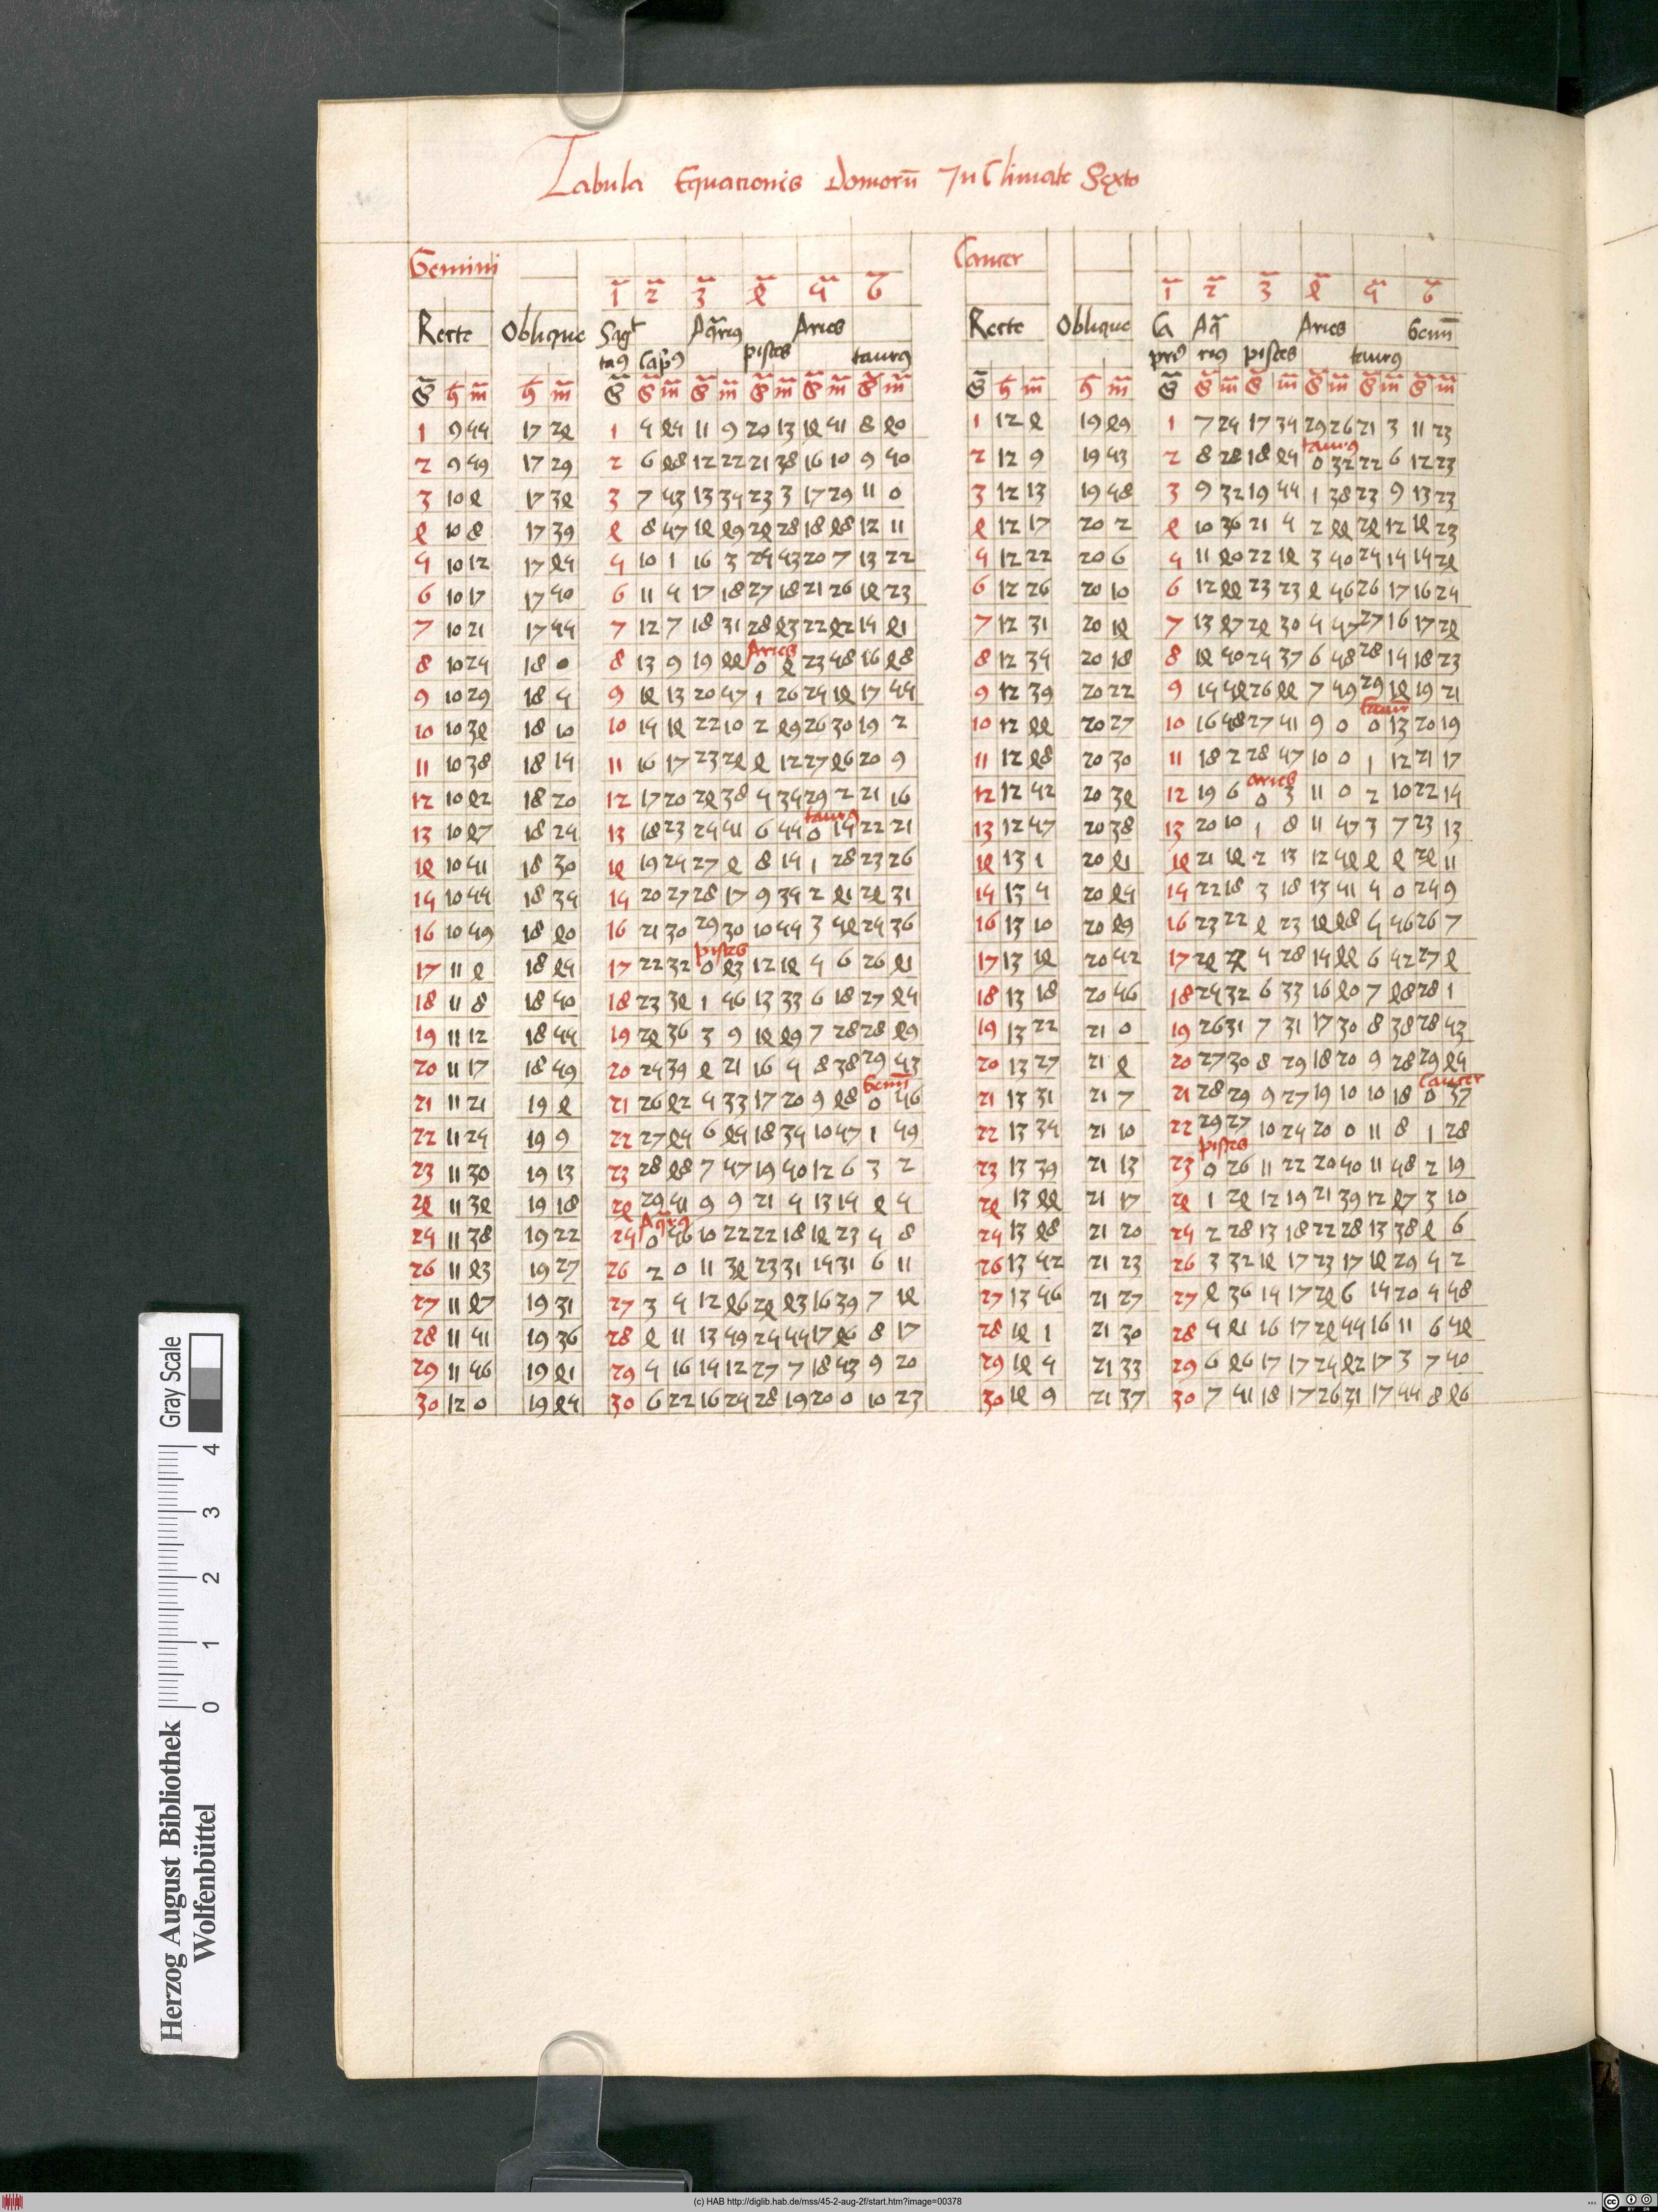 Tabula Equationis Domorū In Climate Sexto
Gemini
1 2 3 4 5 6
Recte Oblique Sagt Aqrius Aries
taq Capꝰ pisces taurꝰ
G h m h m G G m G m G m G m G m
1 9 55 17 24 1 5 45 11 9 20 13 14 51 8 40
2 9 59 17 29 2 6 48 12 22 21 38 16 10 9 50
3 10 4 17 34 3 7 53 13 35 23 3 17 29 11 0
4 10 8 17 39 4 8 57 14 49 24 28 18 48 12 11
5 10 12 17 45 5 10 1 16 3 25 53 20 7 13 22
6 10 17 17 50 6 11 5 17 18 27 18 21 26 14 23
7 10 21 17 55 7 12 7 18 31 28 43 22 42 15 41
Aries
8 10 25 18 0 8 13 9 19 44 0 4 23 58 16 48
9 10 29 18 5 9 14 13 20 57 1 26 25 14 17 55
10 10 34 18 10 10 15 14 22 10 2 49 26 30 19 2
11 10 38 18 15 11 16 17 23 24 4 12 27 46 20 9
12 10 42 18 20 12 17 20 24 38 5 35 29 2 21 16
taurꝰ
13 10 47 18 25 13 18 23 25 51 6 55 0 15 22 21
14 10 51 18 30 14 19 25 27 4 8 15 1 28 23 26
15 10 55 18 35 15 20 27 28 17 9 35 2 41 24 31
16 10 59 18 40 16 21 30 29 30 10 55 3 54 25 36
pisces
17 11 4 18 45 17 22 32 0 43 12 14 5 6 26 41
18 11 8 18 50 18 23 34 1 56 13 33 6 18 27 45
19 11 12 18 55 19 24 36 3 9 14 49 7 28 28 49
20 11 17 18 59 20 25 39 4 21 16 5 8 38 29 53
Gemī
21 11 21 19 4 21 26 42 5 33 17 20 9 48 0 56
22 11 25 19 9 22 27 45 6 45 18 35 10 57 1 59
23 11 30 19 13 23 28 48 7 57 19 50 12 6 3 2
24 11 34 19 18 24 29 51 9 9 21 5 13 15 4 5
Aqrꝰ
25 11 38 19 22 25 0 56 10 22 22 18 14 23 5 8
26 11 43 19 27 26 2 0 11 34 23 31 15 31 6 11
27 11 47 19 31 27 3 5 12 46 24 43 16 39 7 14
28 11 51 19 36 28 4 11 13 59 25 55 17 46 8 17
29 11 56 19 41 29 5 16 15 12 27 7 18 53 9 20
30 12 0 19 45 30 6 22 16 25 28 19 20 0 10 23
Cancer
1 2 3 4 5 6
Recte Oblique Ca Aq Aries Gemī
prꝰ riꝰ pisces taurꝰ
G h m h m G G m G m G m G m G m
1 12 4 19 49 1 7 25 17 35 29 26 21 3 11 23
taurꝰ
2 12 9 19 53 2 8 28 18 45 0 32 22 6 12 23
3 12 13 19 58 3 9 32 19 55 1 38 23 9 13 23
4 12 17 20 2 4 10 36 21 5 2 44 24 12 14 23
5 12 22 20 6 5 11 40 22 14 3 50 25 15 15 24
6 12 26 20 10 6 12 44 23 23 4 56 26 17 16 25
7 12 31 20 14 7 13 47 24 30 5 57 27 16 17 24
8 12 35 20 18 8 14 50 25 37 6 58 28 15 18 23
9 12 39 20 22 9 15 54 26 44 7 59 29 14 19 21
10 12 44 20 27 10 16 58 27 51 9 0 0 13 20 19
11 12 48 20 30 11 18 2 28 57 10 0 1 12 21 17
aries
12 12 52 20 34 12 19 6 0 3 11 0 2 10 22 15
13 12 57 20 38 13 20 10 1 8 11 57 3 7 23 13
14 13 1 20 41 14 21 14 2 13 12 54 4 4 24 11
15 13 5 20 45 15 22 18 3 18 13 51 5 0 25 9
16 13 10 20 49 16 23 22 4 23 14 48 5 56 26 7
17 13 14 20 52 17 24 27 5 28 15 44 6 52 27 4
18 13 18 20 56 18 25 32 6 33 16 40 7 48 28 1
19 13 22 21 0 19 26 31 7 31 17 30 8 38 28 53
20 13 27 21 4 20 27 30 8 29 18 20 9 28 29 45
Cancer
21 13 31 21 7 21 28 29 9 27 19 10 10 18 0 37
22 13 35 21 10 22 29 27 10 25 20 0 11 8 1 28
pisces
23 13 39 21 13 23 0 26 11 22 20 50 11 58 2 19
24 13 44 21 17 24 1 24 12 19 21 39 12 47 3 10
25 13 48 21 20 25 2 28 13 18 22 28 13 38 4 6
26 13 52 21 23 26 3 32 14 17 23 17 14 29 5 2
27 13 56 21 27 27 4 36 15 17 24 6 15 20 5 58
28 14 1 21 30 28 5 41 16 17 24 55 16 11 6 54
29 14 5 21 33 29 6 46 17 17 25 42 17 3 7 50
30 14 9 21 37 30 7 51 18 17 26 31 17 55 8 46
Herzog August Bibliothek
Wolfenbüttel
Gray Scale
0 1 2 3 4
(c) HAB http://diglib.hab.de/mss/45-2-aug-2f/start.htm?image=00378